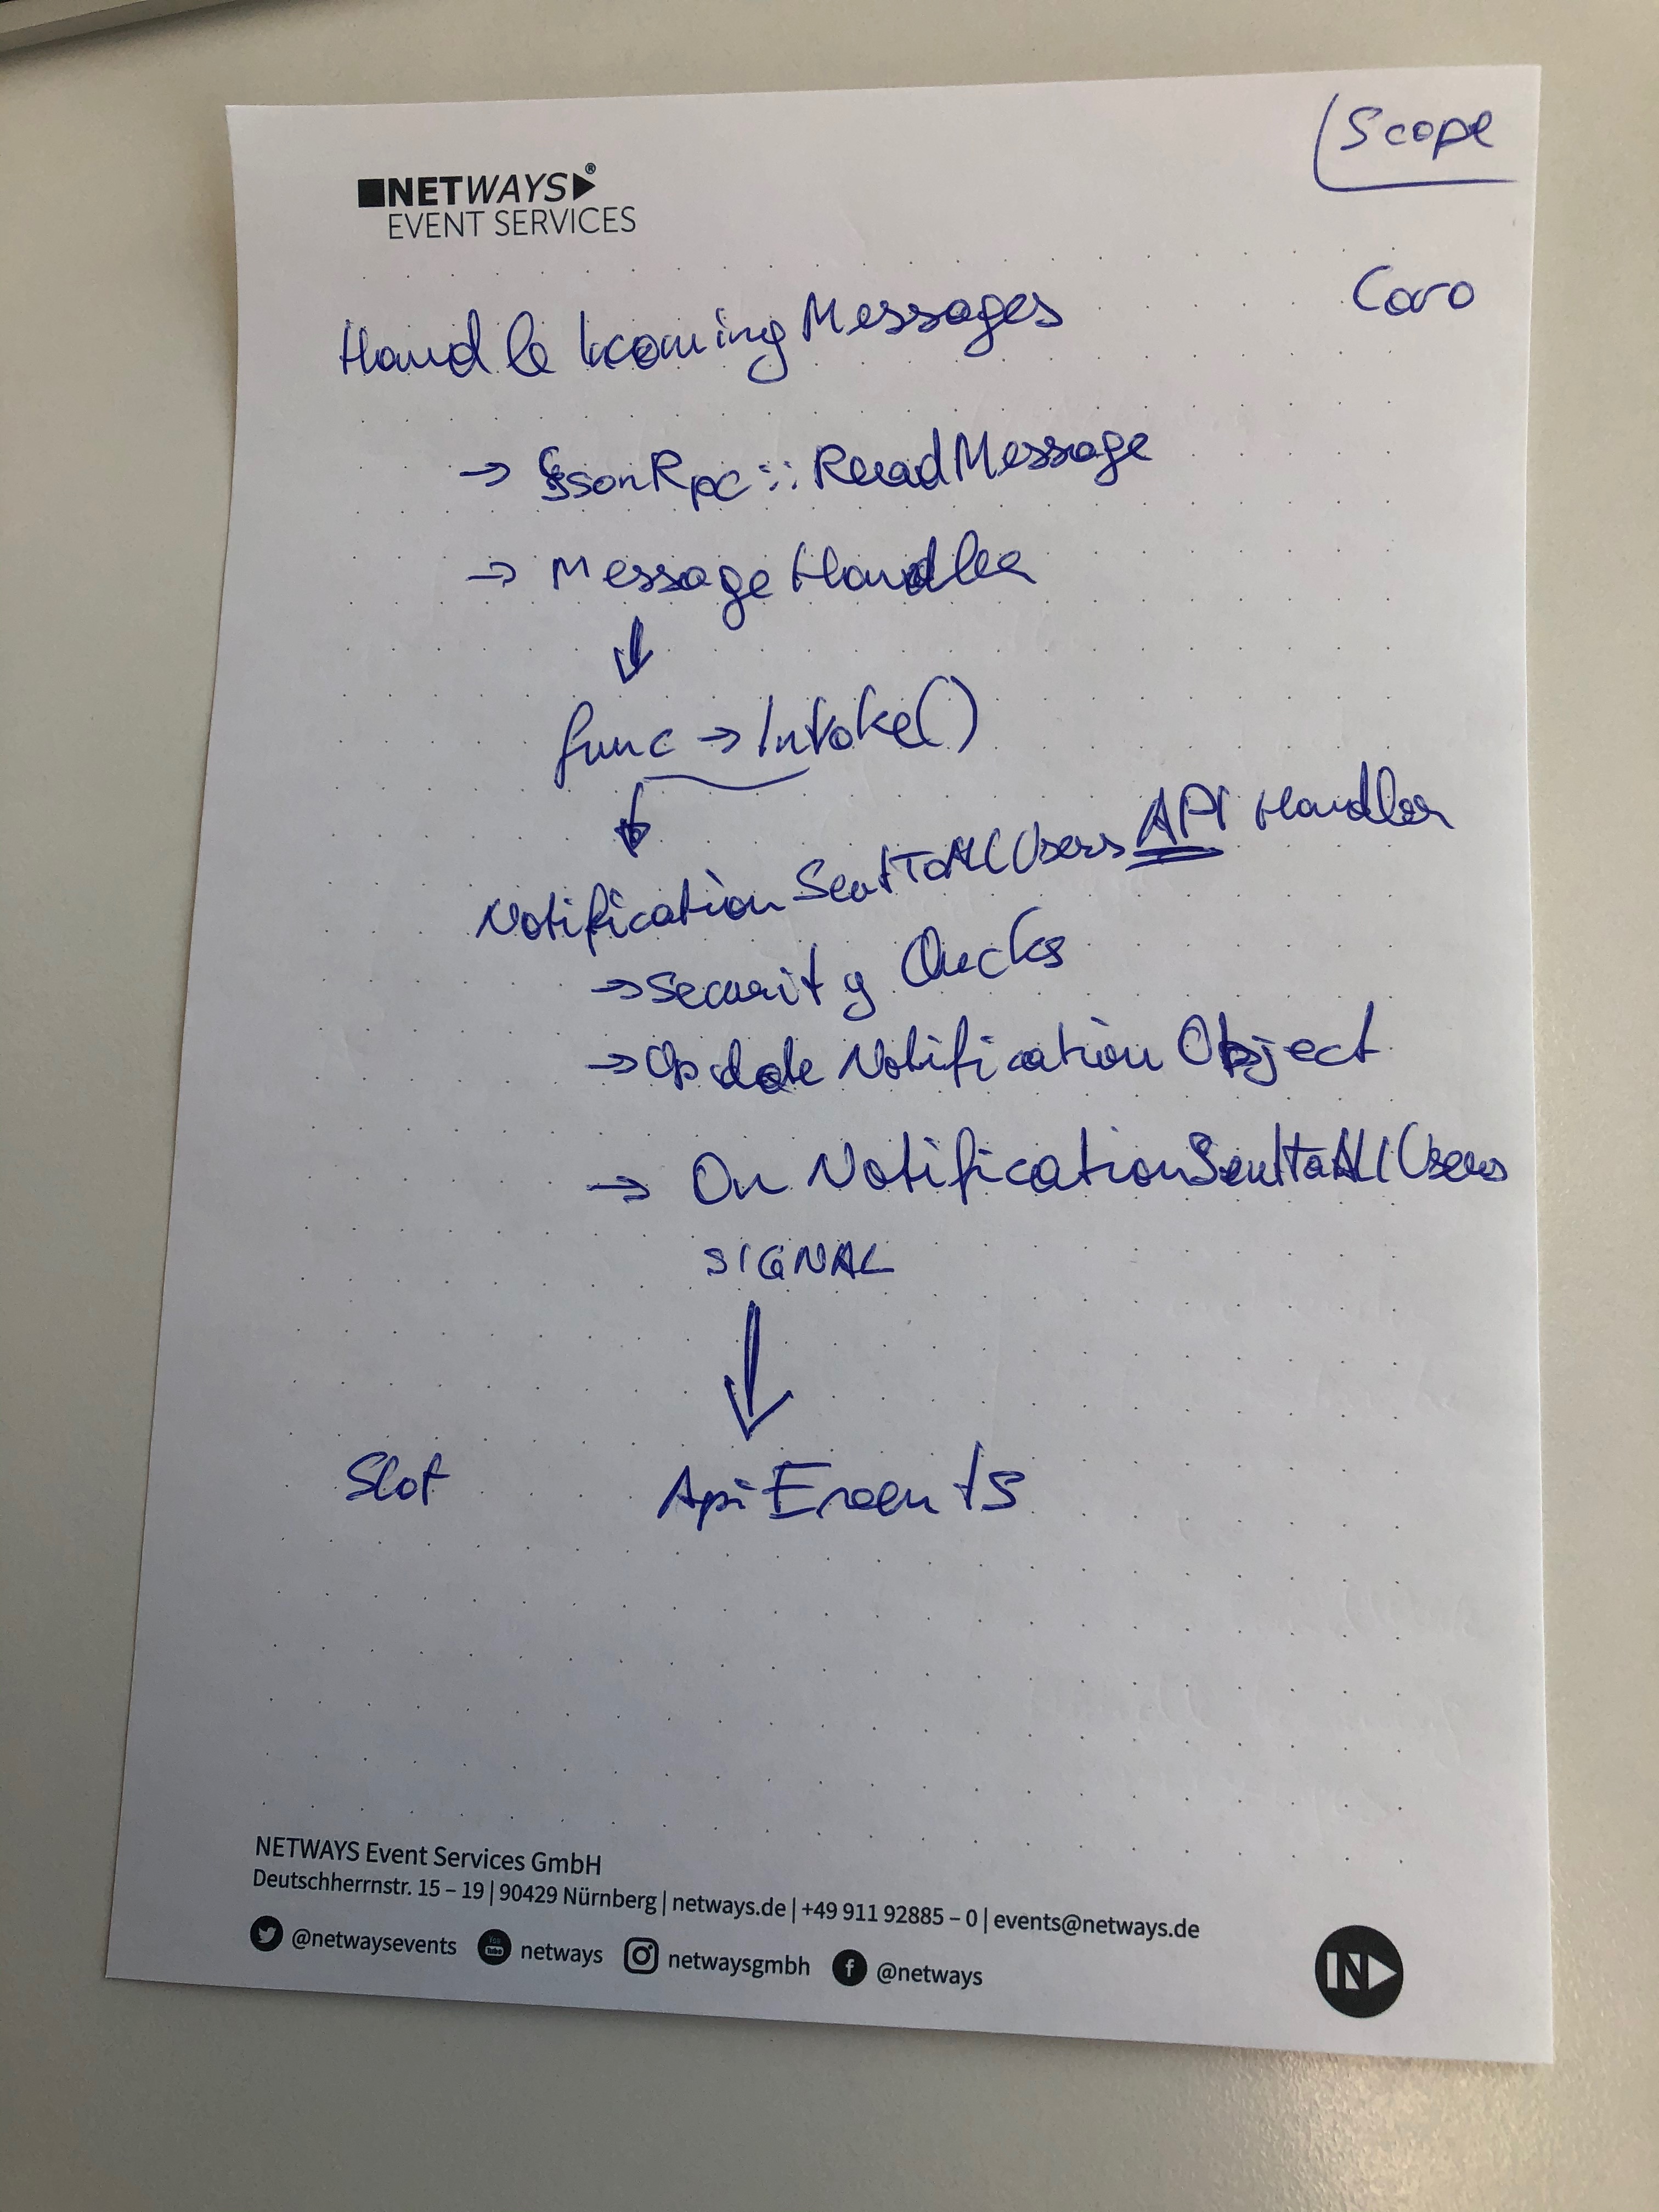 Scope
NETWAYS®
EVENT SERVICES
Coro
Handle Icoming Messages
→ JsonRpc::ReadMessage
→ MessageHandler
↓
func → Invoke()
↓
NotificationSentToAllUsers API Handler
→ Security Checks
→ Update Notification Object
→ On NotificationSentToAllUsers
SIGNAL
↓
Slot ApiEvents
NETWAYS Event Services GmbH
Deutschherrnstr. 15 – 19 | 90429 Nürnberg | netways.de | +49 911 92885 – 0 | events@netways.de
@netwaysevents You Tube netways netwaysgmbh f @netways
IN